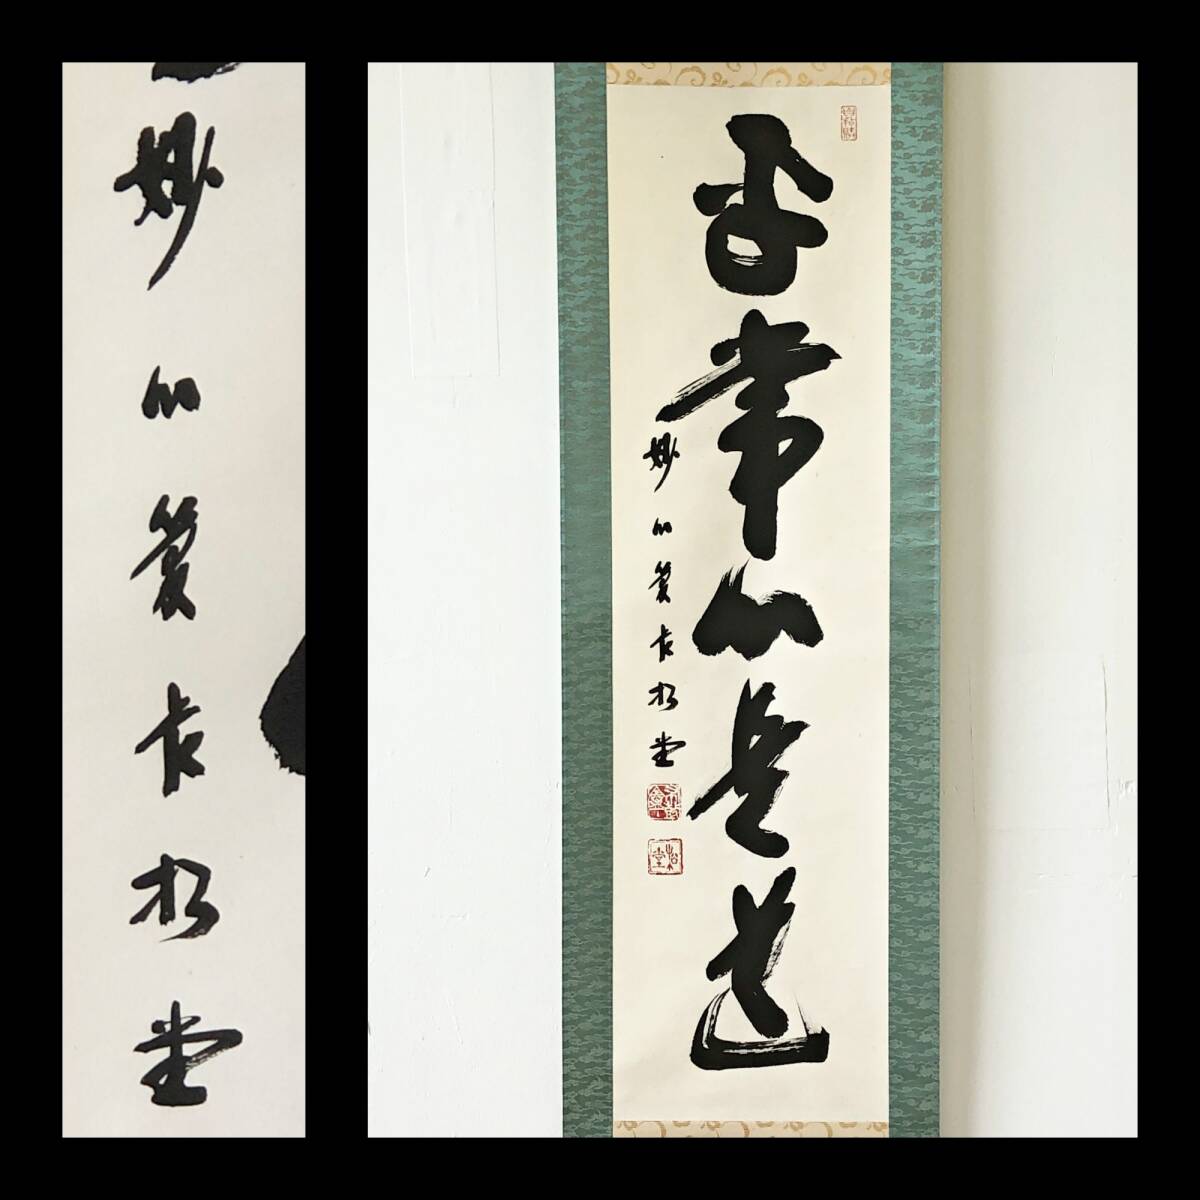 妙心管長松堂
平常心是道
妙心管長松堂
松堂